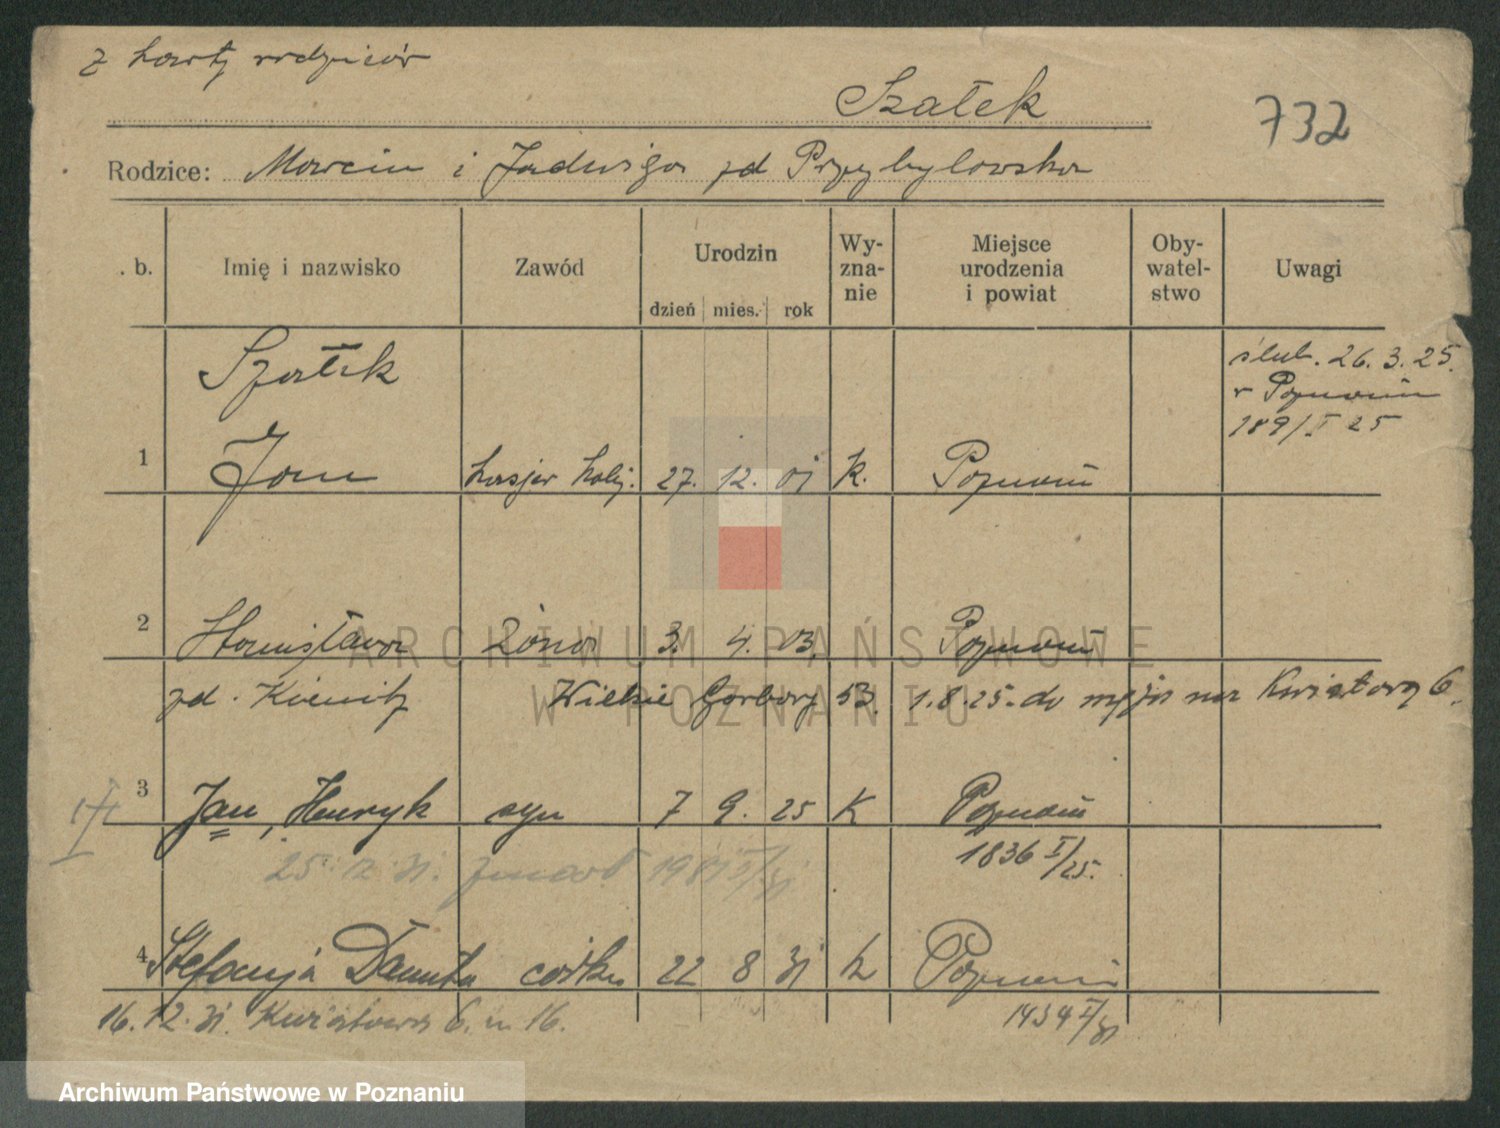 z karty rodziców
Szałek
732
Rodzice: Marcin i Jadwiga zd Przybylowska
. b. Imię i nazwisko Zawód Urodzin dzień mies. rok Wy-zna-nie Miejsce urodzenia i powiat Oby-watel-stwo Uwagi
Szałek
ślub. 26.3.25.
w Poznaniu
189/I 25
1 Jan kasjer kolej. 27. 12. 01 k. Poznań
2 Stanisława żona 3. 4. 03. Poznań
zd. Kienitz Wielkie Garbary 53. 1.8.25. do męża na Kwiatową 6.
3 Jan, Henryk syn 7 9. 25 K Poznań
1836 I/25.
25.12.31. zmarł 1981 I/31
4 Stefanja Danuta córka 22 8 31 k Poznań
16.12.31. Kwiatowa 6. m 16.
1434 I/31
ARCHIWUM PAŃSTWOWE
W POZNANIU
Archiwum Państwowe w Poznaniu